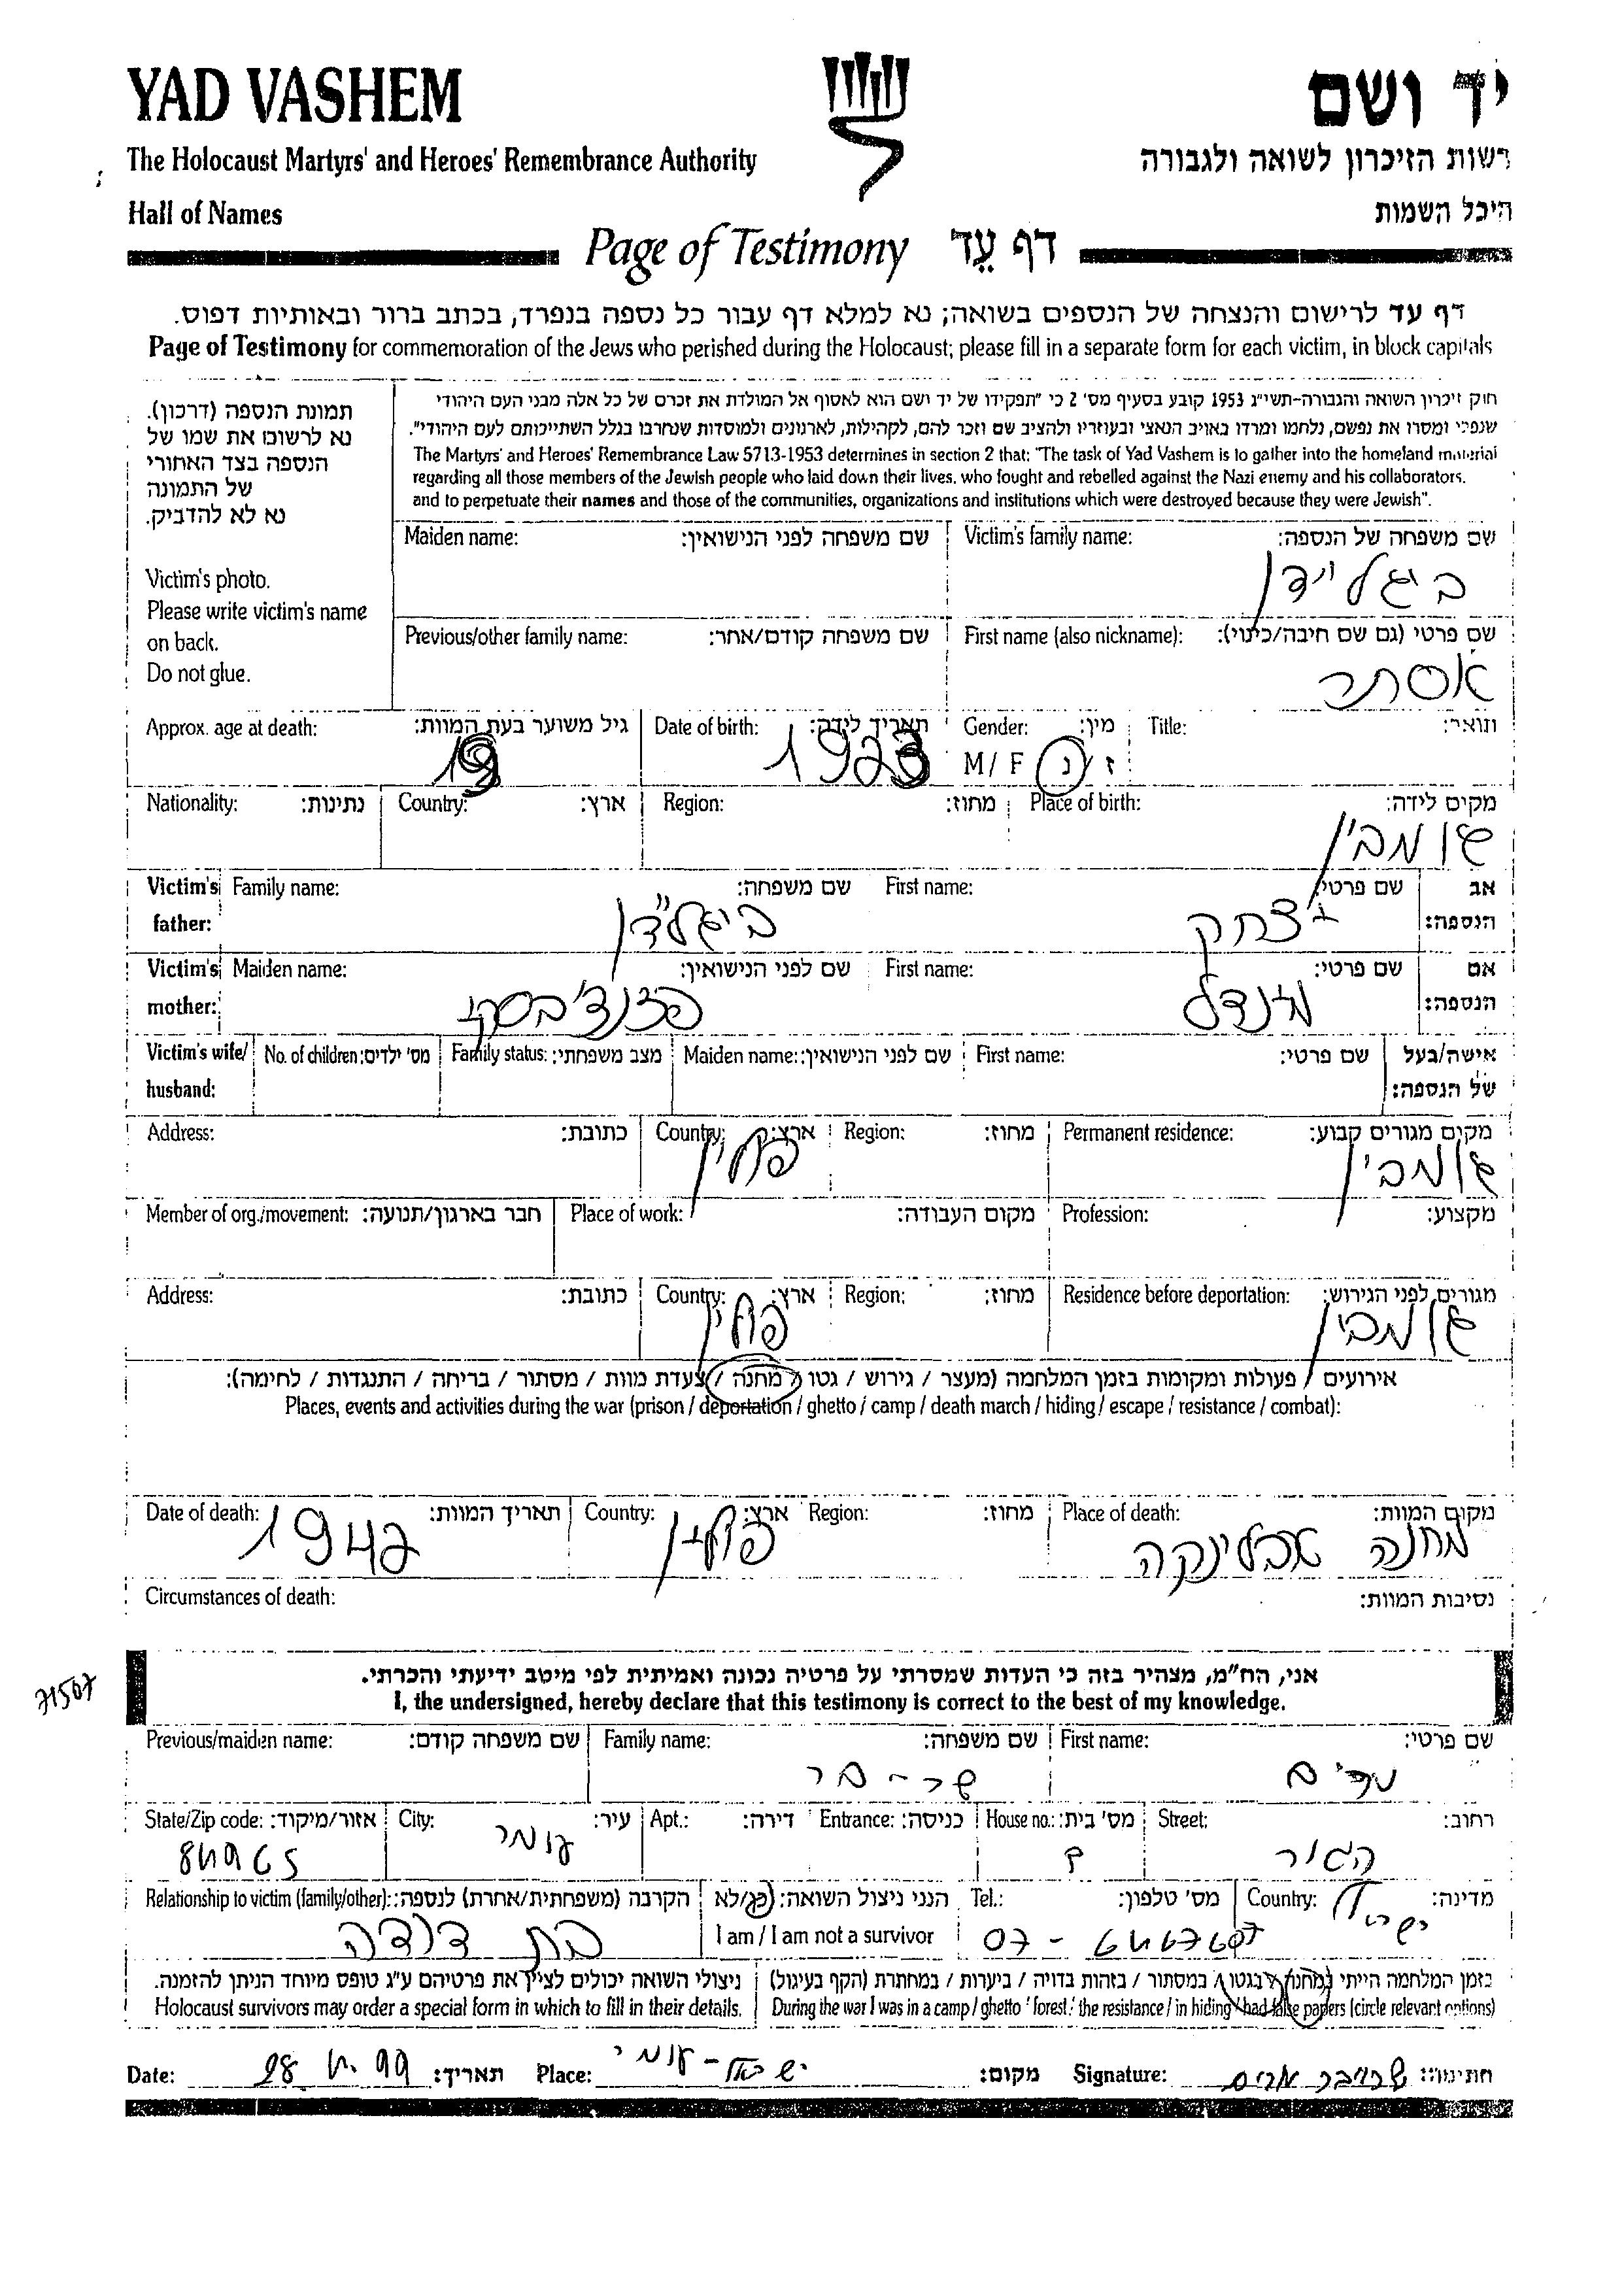 YAD VASHEM
יד ושם
The Holocaust Martyrs' and Heroes' Remembrance Authority
רשות הזיכרון לשואה ולגבורה
Hall of Names
היכל השמות
Page of Testimony דף עֵד
דף עד לרישום והנצחה של הנספים בשואה; נא למלא דף עבור כל נספה בנפרד, בכתב ברור ובאותיות דפוס.
Page of Testimony for commemoration of the Jews who perished during the Holocaust; please fill in a separate form for each victim, in block capitals
תמונת הנספה (דרכון).
נא לרשום את שמו של
הנספה בצד האחורי
של התמונה
נא לא להדביק.
Victim's photo.
Please write victim's name
on back.
Do not glue.
חוק זיכרון השואה והגבורה-תשי״ג 1953 קובע בסעיף מס׳ 2 כי ״תפקידו של יד ושם הוא לאסוף אל המולדת את זכרם של כל אלה מבני העם היהודי
שנפלו ומסרו את נפשם, נלחמו ומרדו באויב הנאצי ובעוזריו ולהציב שם וזכר להם, לקהילות, לארגונים ולמוסדות שנחרבו בגלל השתייכותם לעם היהודי״.
The Martyrs' and Heroes' Remembrance Law 5713-1953 determines in section 2 that: "The task of Yad Vashem is to gather into the homeland material
regarding all those members of the Jewish people who laid down their lives, who fought and rebelled against the Nazi enemy and his collaborators,
and to perpetuate their names and those of the communities, organizations and institutions which were destroyed because they were Jewish".
Maiden name: שם משפחה לפני הנישואין: Victim's family name: שם משפחה של הנספה:
ביגלייזן
Previous/other family name: שם משפחה קודם/אחר: First name (also nickname): שם פרטי (גם שם חיבה/כינוי):
אסתר
Approx. age at death: גיל משוער בעת המוות: Date of birth: תאריך לידה: Gender: מין: Title: תואר:
19 1923 M/ F ז / נ
Nationality: נתינות: Country: ארץ: Region: מחוז: Place of birth: מקום לידה:
גומבין
Victim's father: Family name: שם משפחה: First name: שם פרטי: אב הנספה:
יצחק
Victim's mother: Maiden name: שם לפני הנישואין: First name: שם פרטי: אם הנספה:
Victim's wife/ husband: No. of children: מס׳ ילדים: Family status: מצב משפחתי: Maiden name: שם לפני הנישואין: First name: שם פרטי: אישה/בעל של הנספה:
Address: כתובת: Country: ארץ: Region: מחוז: Permanent residence: מקום מגורים קבוע:
פולין גומבין
Member of org./movement: חבר בארגון/תנועה: Place of work: מקום העבודה: Profession: מקצוע:
Address: כתובת: Country: ארץ: Region: מחוז: Residence before deportation: מגורים לפני הגירוש:
פולין גומבין
אירועים / פעולות ומקומות בזמן המלחמה (מעצר / גירוש / גטו / מחנה / צעדת מוות / מסתור / בריחה / התנגדות / לחימה):
Places, events and activities during the war (prison / deportation / ghetto / camp / death march / hiding / escape / resistance / combat):
Date of death: תאריך המוות: Country: ארץ: Region: מחוז: Place of death: מקום המוות:
1942 פולין מחנה טבלינקה
Circumstances of death: נסיבות המוות:
71507
אני, הח״מ, מצהיר בזה כי העדות שמסרתי על פרטיה נכונה ואמיתית לפי מיטב ידיעתי והכרתי.
I, the undersigned, hereby declare that this testimony is correct to the best of my knowledge.
Previous/maiden name: שם משפחה קודם: Family name: שם משפחה: First name: שם פרטי:
State/Zip code: אזור/מיקוד: City: עיר: Apt.: דירה: Entrance: כניסה: House no.: מס׳ בית: Street: רחוב:
84965 עומר
Relationship to victim (family/other): הקרבה (משפחתית/אחרת) לנספה: הנני ניצול השואה: כן/לא Tel.: מס׳ טלפון: Country: מדינה:
בת דודה I am / I am not a survivor ישראל
ניצולי השואה יכולים לציין את פרטיהם ע״ג טופס מיוחד הניתן להזמנה.
Holocaust survivors may order a special form in which to fill in their details.
בזמן המלחמה הייתי במחנה / בגטו / במסתור / בזהות בדויה / ביערות / במחתרת (הקף בעיגול)
During the war I was in a camp / ghetto / forest / the resistance / in hiding / had false papers (circle relevant options)
Date: תאריך: Place: ישראל - עומר מקום: Signature: חתימה: